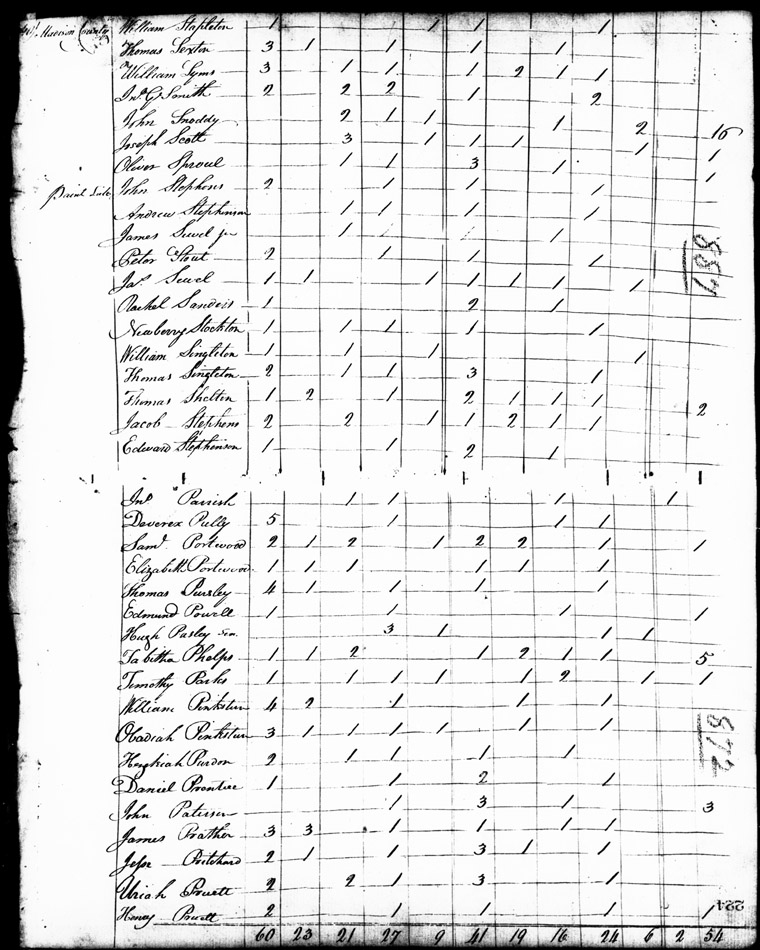 Madison County William Stapleton 1 1 1 1 1
Thomas Sexton 3 1 1 1 1
William Syms 3 1 1 1 2 1 1
Jnº G Smith 2 2 2 1 2
John Snoddy 2 1 1 1 2 16
Joseph Scott 3 1 1 1 1 1
Oliver Sproul 1 1 3 1 1
John Stephens 2 1 1 1
Andrew Stephenson 1 1 1 1
James Sewel jr 1 1
Peter Stout 2 1 1 1
Jas. Sewel 1 1 1 1 1 1 1
Rachel Sanders 1 2 1
Newberry Stockton 1 1 1 1 1
William Singleton 1 1 1 1
Thomas Singleton 2 1 1 3 1
Thomas Shelton 1 2 1 2 1 1 1 2
Jacob Stephens 2 2 1 1 2 1 1
Edward Stephenson 1 1 2 1
887
Jnº Parrish 1 1 1 1
Deverex Pully 5 1 1 1
Saml. Portwood 2 1 2 1 2 2 1 1
Elizabeth Portwood 1 1 1 1 1 1
Thomas Pursley 4 1 1 1 1
Edmund Powell 1 1 1 1
Hugh Pasley Sen. 3 1 1 1
Tabitha Phelps 1 1 2 1 2 1 1 5
Timothy Parks 1 1 1 1 1 2 1 1
William Pinkston 4 2 1 1 1
Obadiah Pinkston 3 1 1 1 1 1 1
Hezekiah Purdon 2 1 1 1 1
Daniel Prentice 1 1 2 1
John Paterson 1 3 1 3
James Prather 3 3 1 1 1 1
Jesse Pritchard 2 1 1 3 1 1
Uriah Pruett 2 2 1 3 1
Henry Pruett 2 1 1 1 1
872
224
60 23 21 27 9 41 19 16 24 6 2 54